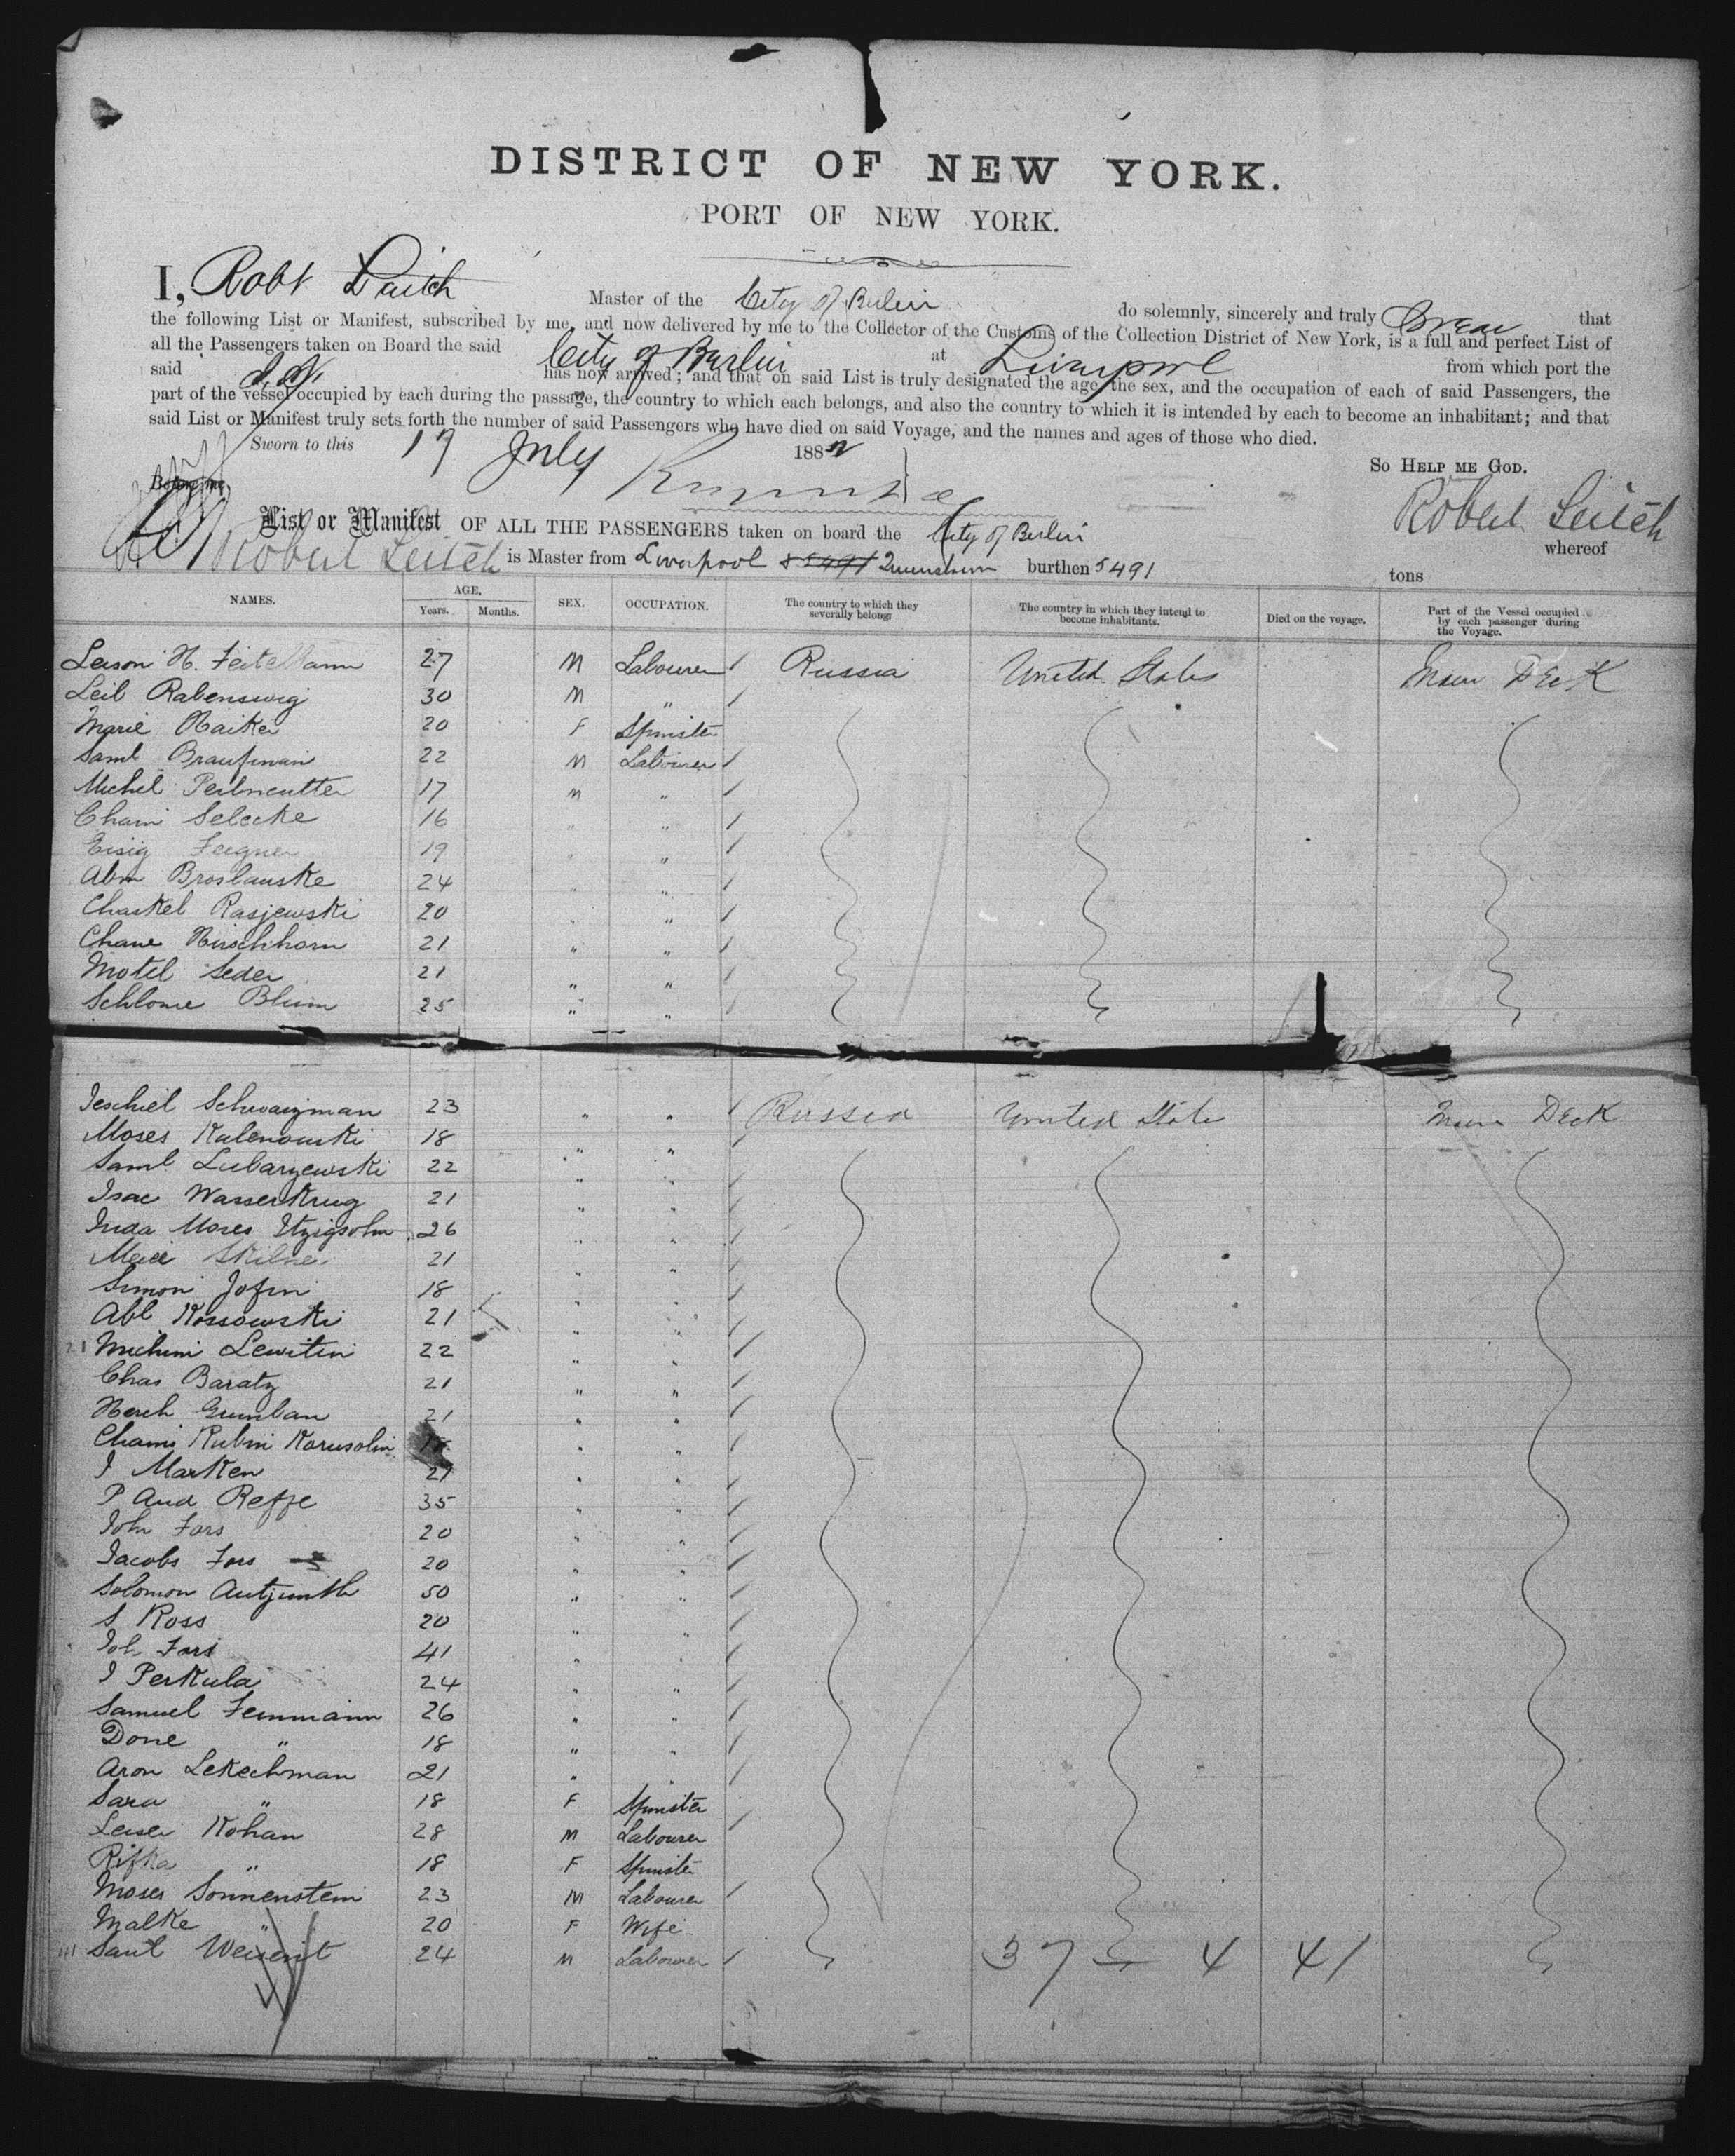 DISTRICT OF NEW YORK.
PORT OF NEW YORK.
I, Robt Leitch Master of the City of Berlin do solemnly, sincerely and truly Swear that
the following List or Manifest, subscribed by me, and now delivered by me to the Collector of the Customs of the Collection District of New York, is a full and perfect List of
all the Passengers taken on Board the said City of Berlin at Liverpool from which port the
said has now arrived; and that on said List is truly designated the age, the sex, and the occupation of each of said Passengers, the
part of the vessel occupied by each during the passage, the country to which each belongs, and also the country to which it is intended by each to become an inhabitant; and that
said List or Manifest truly sets forth the number of said Passengers who have died on said Voyage, and the names and ages of those who died.
Sworn to this 17 July 1882
So HELP ME GOD.
Before me,
Robert Leitch
List or Manifest OF ALL THE PASSENGERS taken on board the City of Berlin whereof
Robert Leitch is Master from Liverpool & 5491 Queenstown burthen 5491 tons
NAMES. AGE. Years. Months. SEX. OCCUPATION. The country to which they severally belong. The country in which they intend to become inhabitants. Died on the voyage. Part of the Vessel occupied by each passenger during the Voyage.
Leison H. 27 M Labourer Russia United States Main Deck
Leib Rabenswig 30 M "
Marie 20 F Spinster
Saml 22 M Labourer
Michel 17 M "
Chaim Selecke 16 " "
Eisig 19 " "
Abm Broslauske 24 " "
Chaskel Rasjewski 20 " "
Chane Hirschhorn 21 " "
Motel Seder 21 " "
Schlome Blum 25 " "
Jeschiel Schwarzman 23 " " Russia United States Main Deck
Moses Kulenowski 18 " "
Saml Lubarzewski 22 " "
Isac Wasserkrug 21 " "
Juda Moses Itzigsohn 26 " "
Meier 21 " "
Simon Jofin 18 " "
Abl Kossowski 21 " "
21 Lewitin 22 " "
Chas Baratz 21 " "
Herch 21 " "
Chaim Rubin " "
I Marken 21 " "
P And 35 " "
Joh Fors 20 " "
Jacobs Fors 20 " "
Solomon 50 " "
S Ross 20 " "
Joh Fors 41 " "
I Perkula 24 " "
Samuel Feinmann 26 " "
Done " 18 " "
Aron Lekechman 21 " "
Sara " 18 F Spinster
Leiser Kohan 28 M Labourer
Rifka " 18 F Spinster
Moses Sonnenstein 23 M Labourer
Malke " 20 F Wife
41 Saul 24 M Labourer 37 4 41